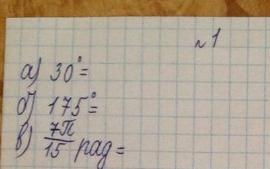 №1
а) 30°=
б) 175°=
в) 7π/15 рад=